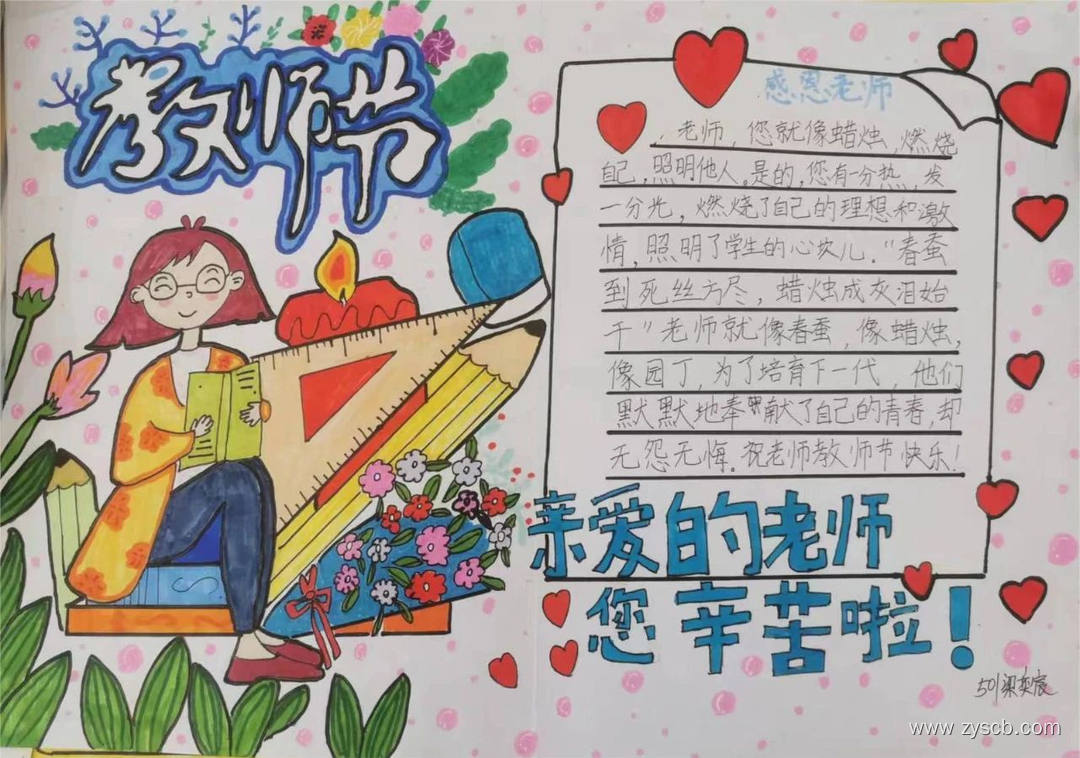 教师节
感恩老师
老师，您就像蜡烛，燃烧
自己，照明他人。是的，您有一分热，发
一分光，燃烧了自己的理想和激
情，照明了学生的心坎儿."春蚕
到死丝方尽，蜡烛成灰泪始
干"老师就像春蚕，像蜡烛，
像园丁，为了培育下一代，他们
默默地奉献了自己的青春，却
无怨无悔。祝老师教师节快乐！
亲爱的老师
您辛苦啦！
501梁奕宸
www.zyscb.com